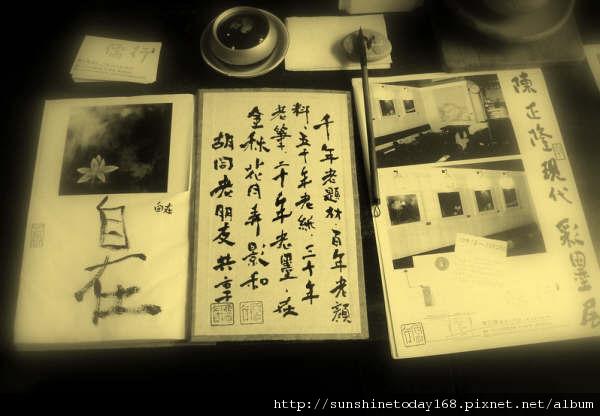 自在
自在
千年老題材 百年老顏
料、五十年老紙、三十年
老筆、二十年老墨、在
金秋花月弄影和
胡同老朋友共享
陳正隆現代彩墨展
http://sunshinetoday168.pixnet.net/album